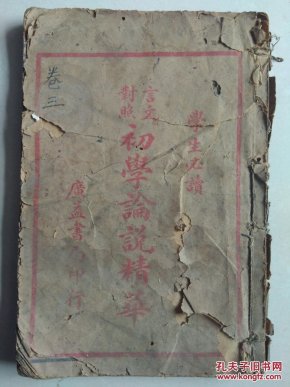 學生必讀
言文對照
初學論說精華
廣益書局印行
卷三
孔夫子旧书网